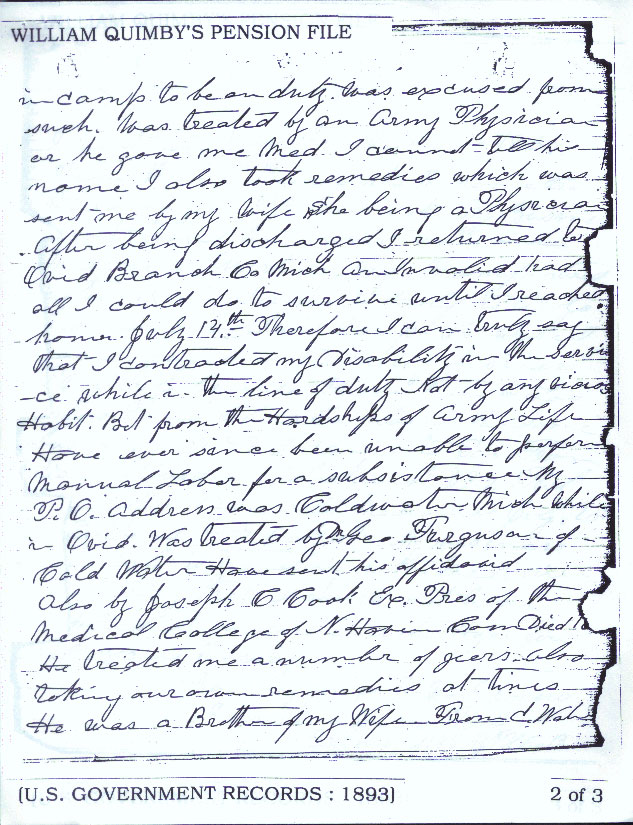 WILLIAM QUIMBY'S PENSION FILE
in camp to be on duty. was excused from
such. Was treated by an Army Physician
or he gave me Med. I cannot tell his
name I also took remedies which was
sent me by my Wife She being a Physician
After being discharged I returned to
Ovid Branch Co Mich an Invalid had
all I could do to survive until I reached
home. July 14th Therefore I can truly say
that I contracted my Disability in the Servi
-ce while in the line of duty Not by any vicious
Habit. But from the Hardships of Army Life
Have ever since been unable to perform
Manual Labor for a subsistance My
P. O. Address was Coldwater Mich while
in Ovid. Was treated by Dr Geo Ferguson of
Cold Water Have sent his affidavid
Also by Joseph C Cook Ex. Pres of the
Medical College of N. Haven Conn Died
He treated me a number of years also
taking our own remedies at times
He was a Brother of my Wife From C Water
(U.S. GOVERNMENT RECORDS : 1893)
2 of 3